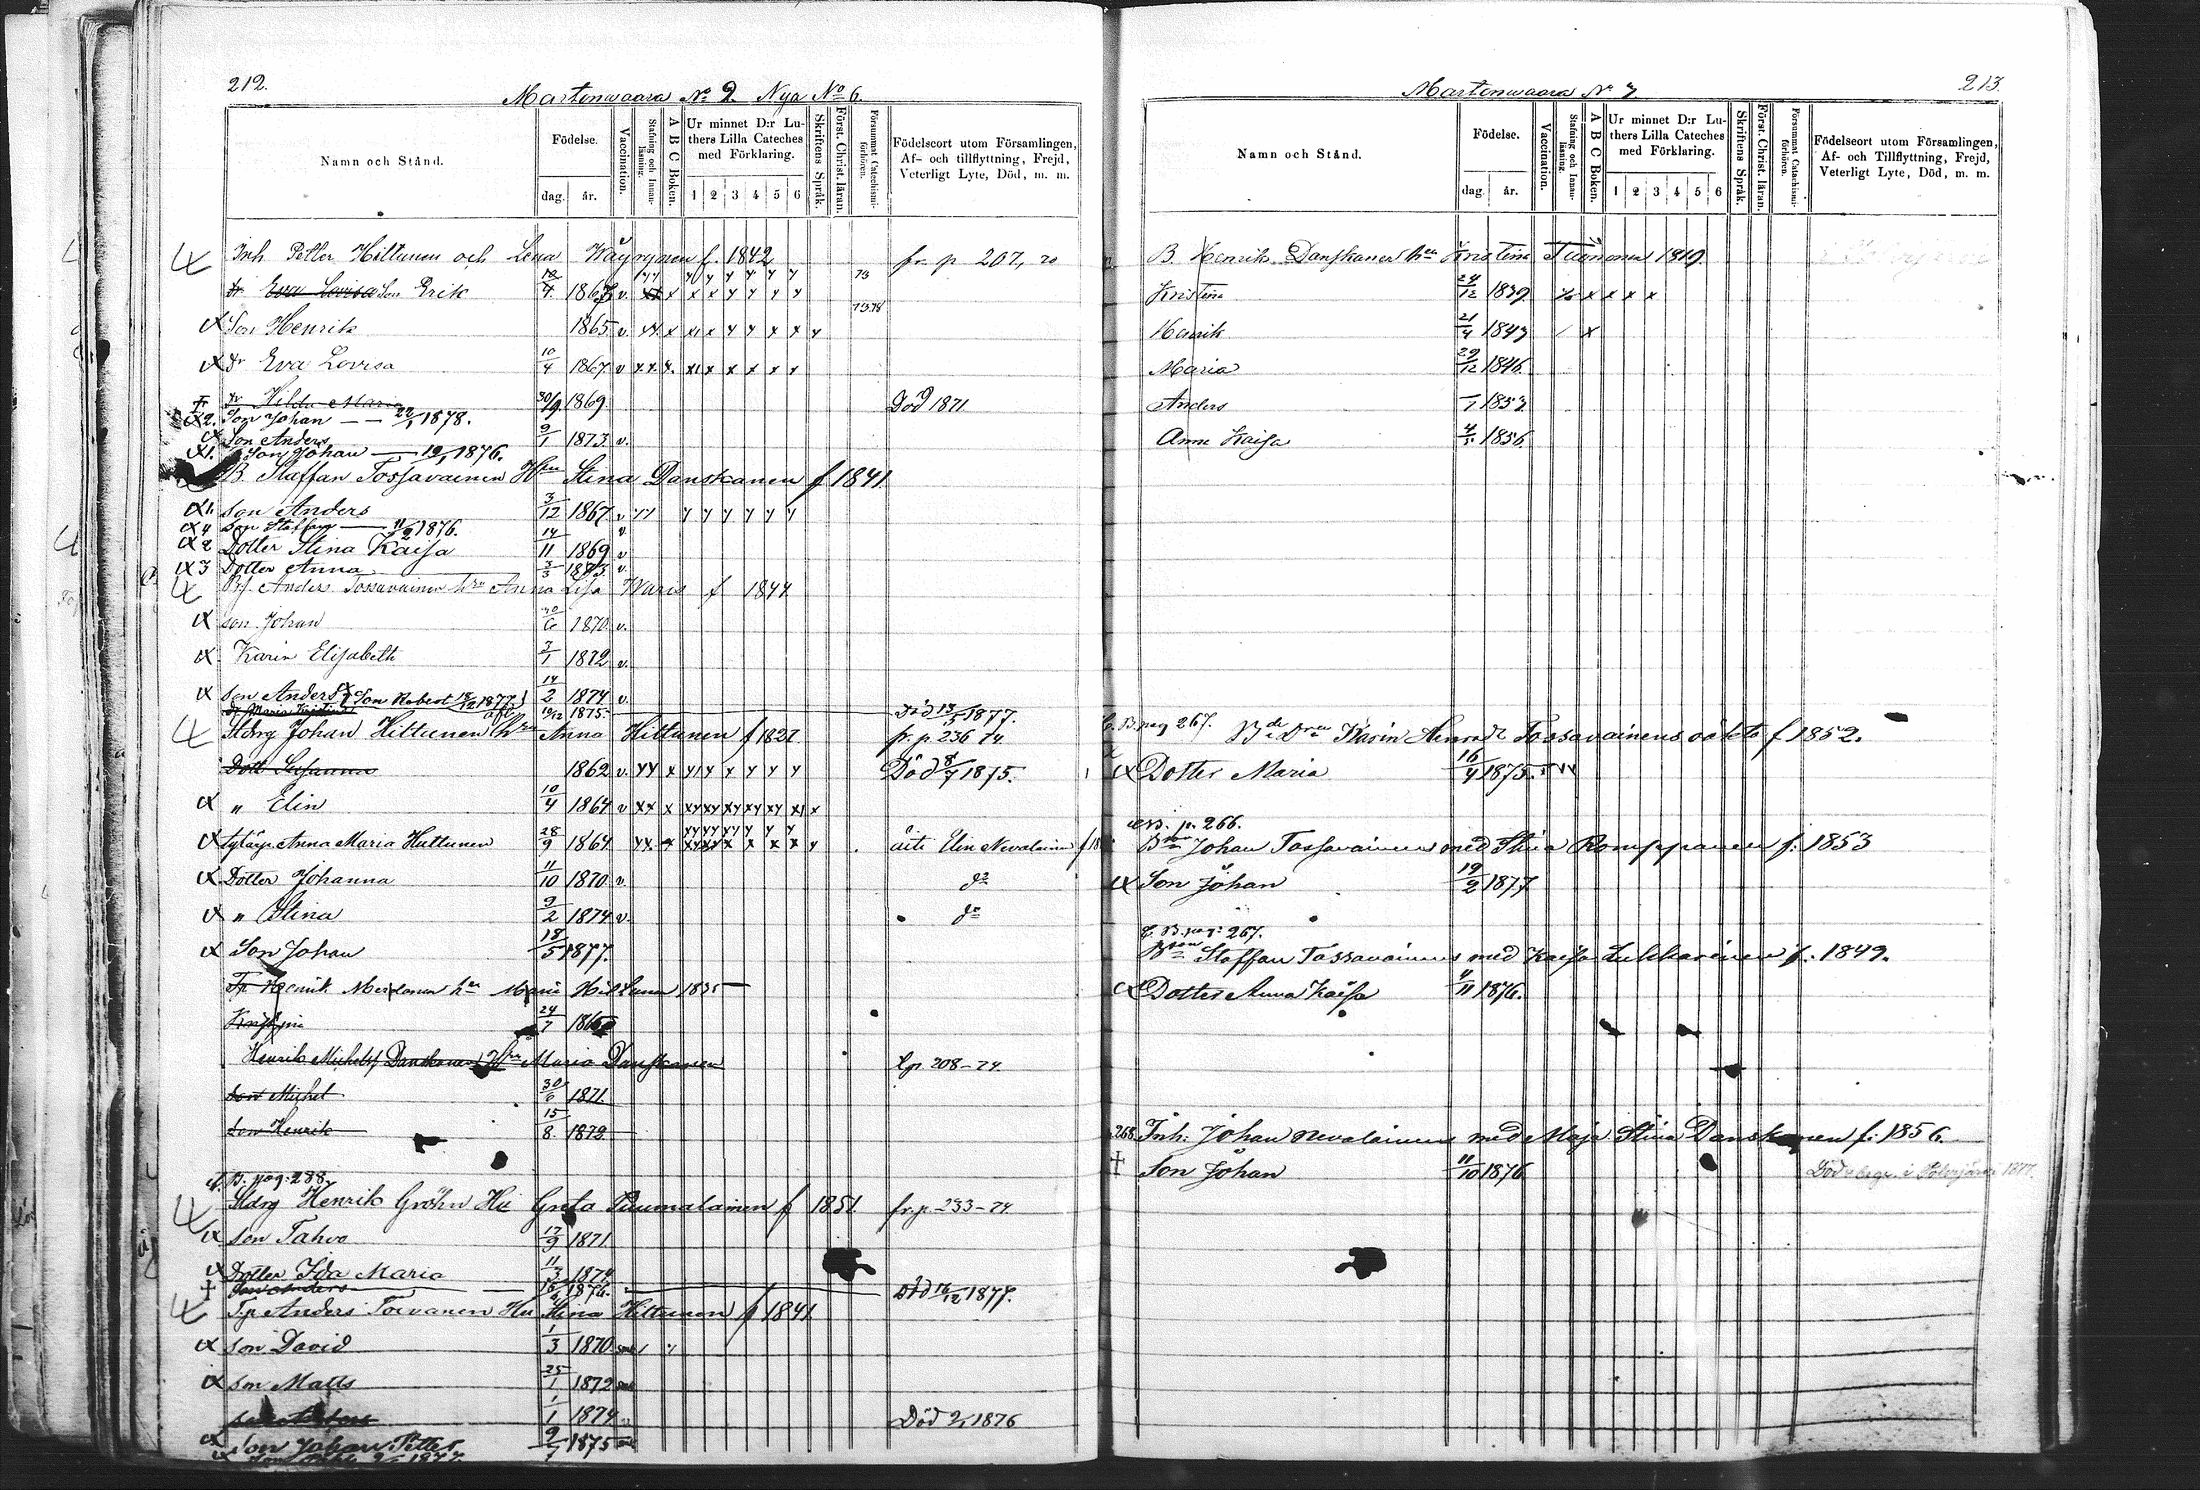 212.
Martonwaara No 2. Nya No 6.
Namn och Stånd.
Födelse.
dag. år.
Vaccination.
Stafning och Innanläsning.
A B C Boken.
Ur minnet D:r Luthers Lilla Cateches med Förklaring.
1 2 3 4 5 6
Skriftens Språk.
Först. Christ. läran.
Försummat Catechismiförhören.
Födelseort utom Församlingen, Af- och tillflyttning, Frejd, Veterligt Lyte, Död, m. m.
Inh. Petter Hiltunen och Lena Wäyrynen f. 1842 fr p 207, 70
dr Eva Lovisa Son Erik 4 1863 v.
Son Henrik 1865 v.
dr Eva Lovisa 10/4 1867 v
dr Hilda Maria 30/9 1869 Död 1871
2. Son Johan — 22/1 1878.
Son Anders 9/1 1873 v.
1. Son Johan — 12/1 1876.
B. Staffan Tossavainen Hru Stina Danskanen f 1841
1. son Anders 3/12 1867 v
4 son Staffan — 11/2 1876. v
2 Dotter Stina Kaisa 14/11 1869 v
3 Dotter Anna 3/3 1873 v.
Anders Tossavainen hru Anna Lisa Waris f 1844
son Johan 6 1870 v.
Karin Elisabeth 3/1 1872 v.
son Anders Son Robert 18/12 1877 14/2 1874 v
dr Maria Kristina 1875 Död 13/5 1877.
Sldrg Johan Hiltunen hru Anna Hiltunen f 1827 fr. p 236 74
Dott Susanna 1862 v. Död 8/7 1875.
" Elin 10/4 1864 v
Anna Maria Huttunen 28/9 1864 Elin Nevalainen
Dotter Johanna 11/10 1870 v. do
" Stina 9/2 1874 v. do
Son Johan 18/5 1877.
Henrik hu Maria Hiltunen 1835
24/7
Henrik Michelsf Danskanen Hru Maria Danskanen p 208-74
son Michel 30/6 1871
son Henrik 15/8 1872
B. pag: 288.
Sldrg Henrik Gröhn Hu Greta Puumalainen f 1851 fr. p 233-74
son Tahvo 17/9 1871
Dotter Ida Maria 11/3 1874
Son Anders 1876. Död 16/12 1877.
Anders Toivanen Hu Stina Hiltunen f 1841
son David 1/3 1870
son Matts 25/1 1872
1/1 1874 Död 2/1 1876
Son Johan Petter 9/7 1875
213.
Martonwaara No 7
Namn och Stånd.
Födelse.
dag. år.
Vaccination.
Stafning och Innanläsning.
A B C Boken.
Ur minnet D:r Luthers Lilla Cateches med Förklaring.
1 2 3 4 5 6
Skriftens Språk.
Först. Christ. läran.
Försummat Catechismiförhören.
Födelseort utom Församlingen, Af- och Tillflyttning, Frejd, Veterligt Lyte, Död, m. m.
B. Henrik Danskanen hru Kristina 1819
Kristina 24/12 1839
Henrik 21/4 1843
Maria 29/12 1846
Anders 1853
Anna Kaisa 4/5 1856
C. B. pag 267. Karin Tossavainens f 1852.
Dotter Maria 16/4 1875
p. 266.
Johan Tossavainens med Stina Romppanen f. 1853
Son Johan 19/2 1877
C. B. pag: 267.
Staffan Tossavainens med Kaisa Lukkarinen f. 1849.
Dotter Anna Kaisa 11 1876.
268. Inh: Johan Nevalainens med Maja Stina Danskanen f: 1856
Son Johan 11/10 1876 Död 1877.